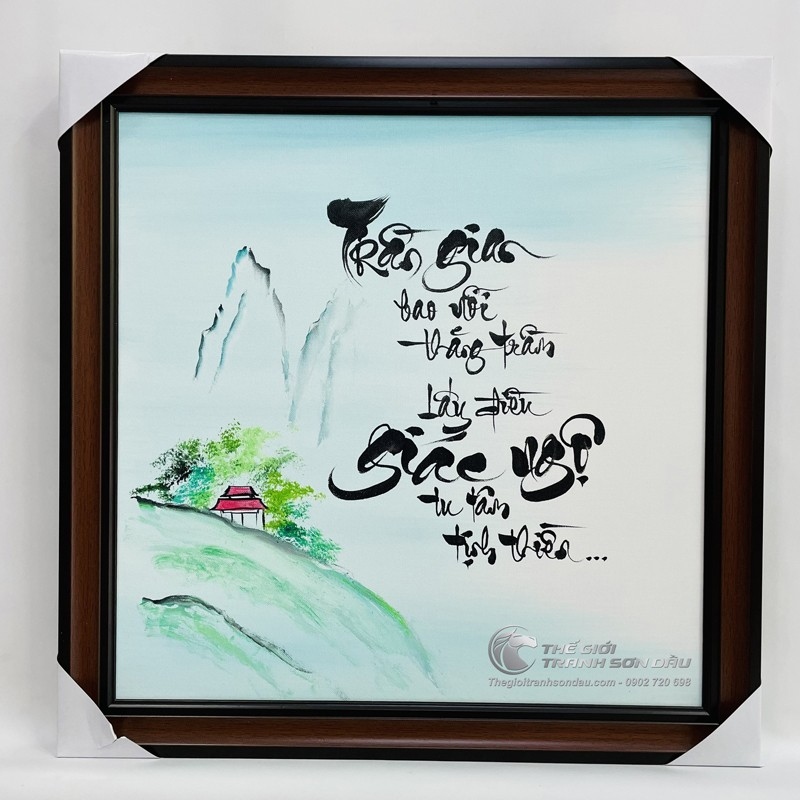 Trần gian
bao nỗi
thăng trầm
Lấy điều
giác ngộ
tu tâm
tịnh thiền...
THẾ GIỚI
TRANH SƠN DẦU
Thegioitranhsondau.com - 0902 720 698